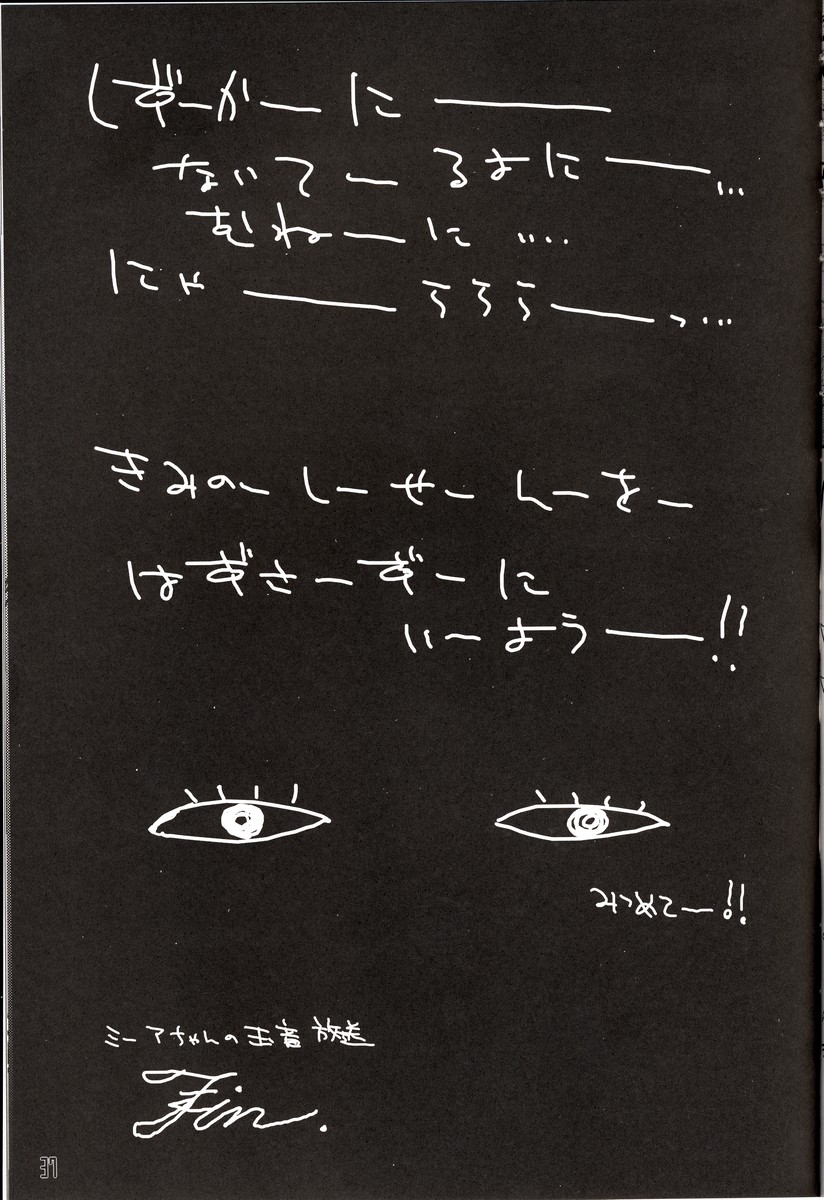 しずーがーに―――
ないてーるよに――…
むねーに‥‥
にゃ―――ろろろ――っ…
きみのーしーせーんーをー
はずさーずーに
いーよう――!!
みつめてー!!
ミーアちゃんの玉音放送
Fin.
37